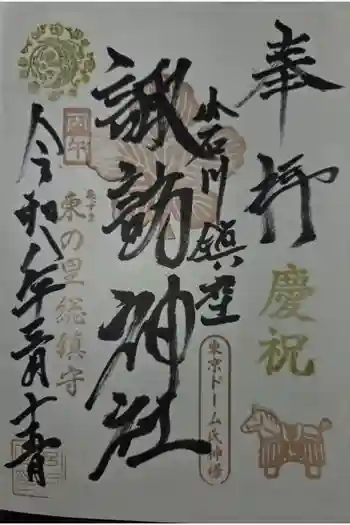 奉拝
慶祝
小石川鎮座
東京ドーム氏神様
諏訪神社
丙午
あずま
東の里総鎮守
令和八年二月十一日